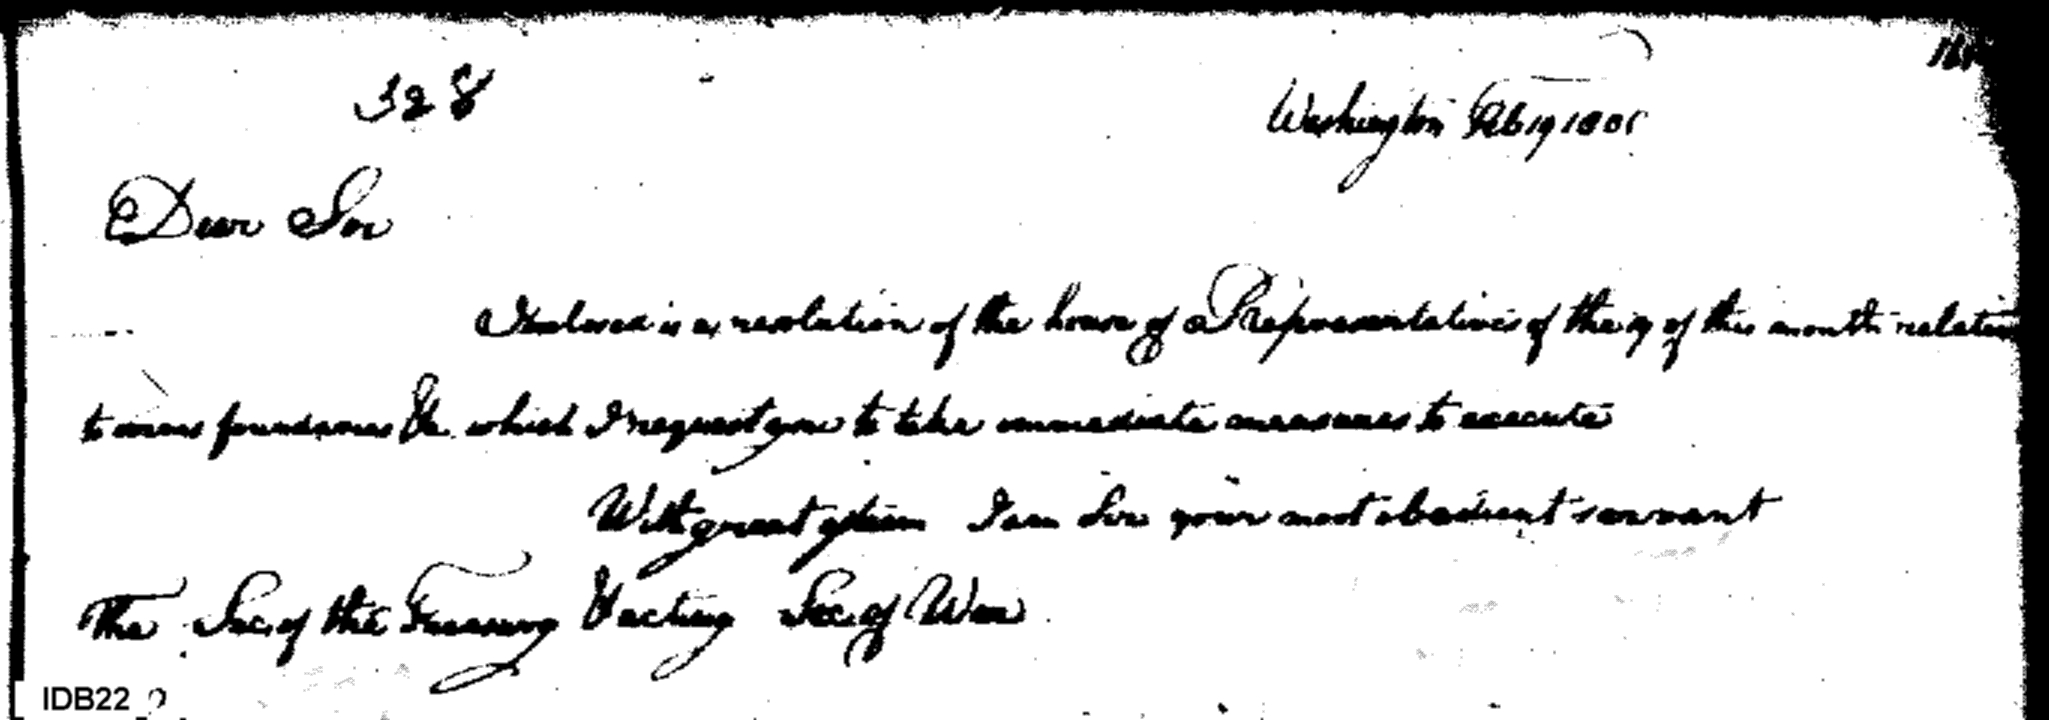 328
Washington Feb 19 1801
Dear Sir
Inclosed is a resolution of the house of Representatives of the 9 of this month relative
to canon founderies &c. which I request you to take immediate measures to execute
With great esteem I am Sir your most obedient servant
The Sec. of the Treasury & acting Sec. of War
IDB22